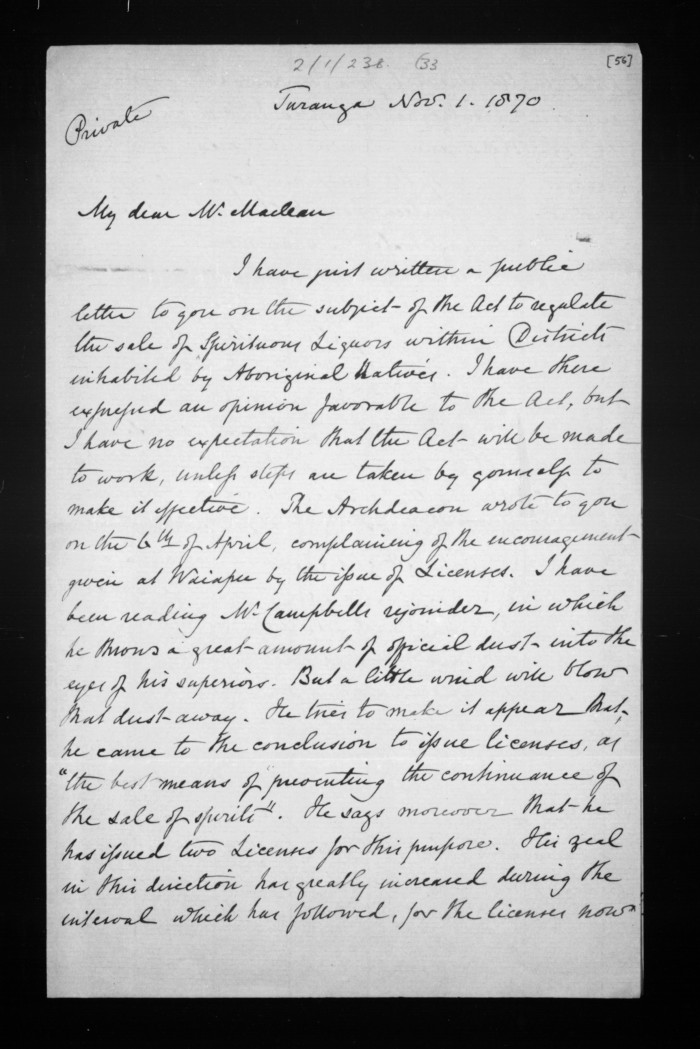 2/1/238. 33
[56]
Turanga Nov. 1. 1870.
Private
My dear Mr. Maclean
I have just written a public
letter to you on the subject of the Act to regulate
the sale of Spirituous Liquors within Districts
inhabited by Aboriginal Natives. I have there
expressed an opinion favorable to the Act, but
I have no expectation that the Act will be made
to work, unless steps are taken by yourself to
make it effective. The Archdeacon wrote to you
on the 6th of April, complaining of the encouragement
given at Waiapu by the issue of Licenses. I have
been reading Mr. Campbells rejoinder, in which
he throws a great amount of official dust into the
eyes of his superiors. But a little wind will blow
that dust away. He tries to make it appear that,
he came to the conclusion to issue licenses, as
"the best means of preventing the continuance of
the sale of spirits". He says moreover that he
has issued two Licenses for this purpose. His zeal
in this direction has greatly increased during the
interval which has followed, for the licenses now